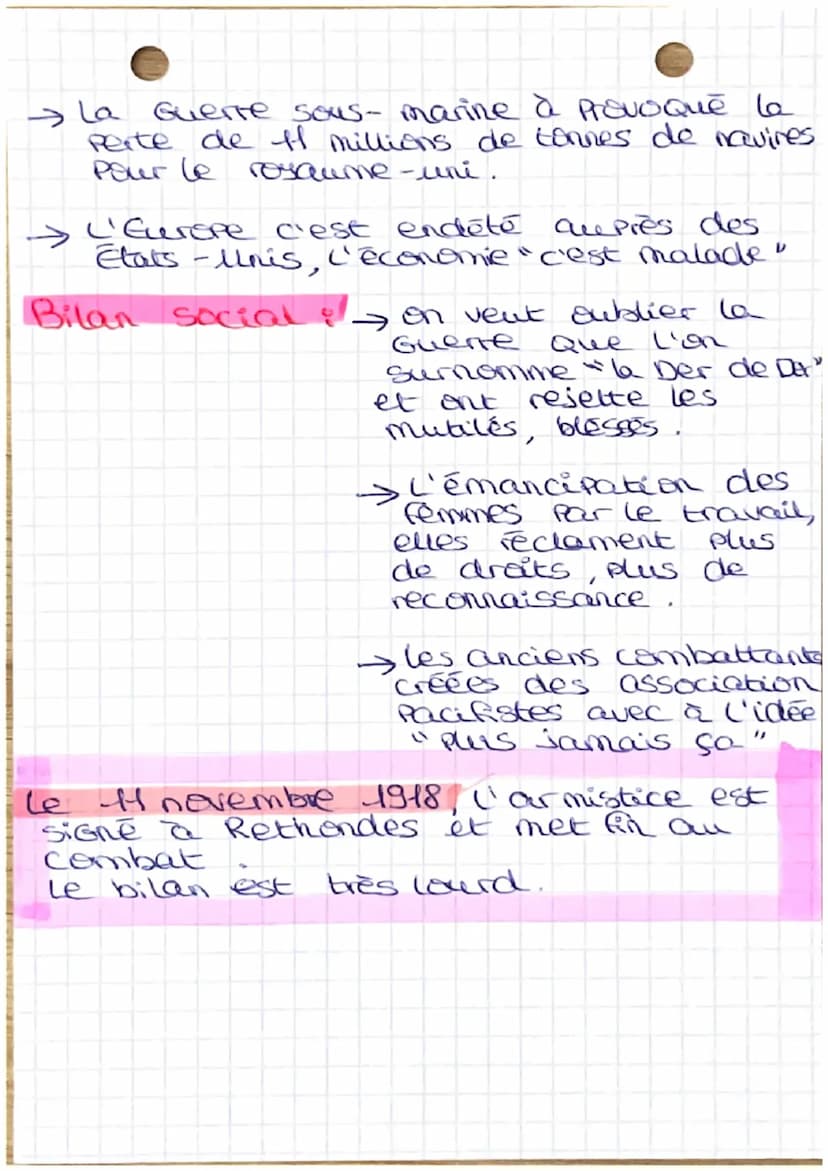 → La Guerre sous-marine à provoqué la
perte de 11 millions de tonnes de navires
pour le royaume-uni.
→ L'Europe c'est endété auprès des
États-Unis, l'économie "c'est malade"
Bilan social : → on veut oublier la
Guerre que l'on
surnomme "la Der de Der"
et ont rejette les
mutilés, blessés.
→ L'émancipation des
femmes par le travail,
elles réclament plus
de droits, plus de
reconnaissance.
→ les anciens combattants
créées des association
pacifistes avec à l'idée
"plus jamais ça"
Le 11 novembre 1918, l'armistice est
signé à Rethondes et met fin au
combat.
Le bilan est très lourd.